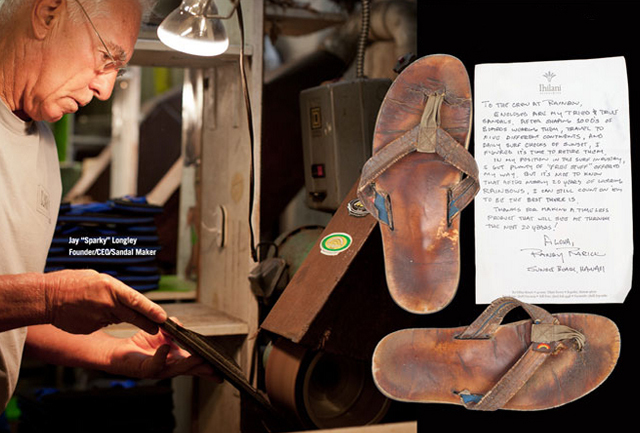 Jay "Sparky" Longley
Founder/CEO/Sandal Maker
Ihilani
TO THE CREW AT RAINBOW,
ENCLOSED ARE MY TRIED & TRUE
SANDALS. AFTER SHAPING 1000'S OF
BOARDS WEARING THEM, TRAVEL TO
FIVE DIFFERENT CONTINENTS, AND
DAILY SURF CHECKS OF SUNSET, I
FIGURED IT'S TIME TO RETIRE THEM.
IN MY POSITION IN THE SURF INDUSTRY,
I GET PLENTY OF "FREE STUFF"
MY WAY. BUT IT'S NICE TO KNOW
THAT AFTER NEARLY 20 YEARS OF WEARING
RAINBOWS, I CAN STILL COUNT ON EM
TO BE THE BEST THERE IS.
THANKS FOR MAKING A TIMELESS
PRODUCT THAT WILL GET ME THROUGH
THE NEXT 20 YEARS!
ALOHA,
RANDY
SUNSET BEACH, HAWAII